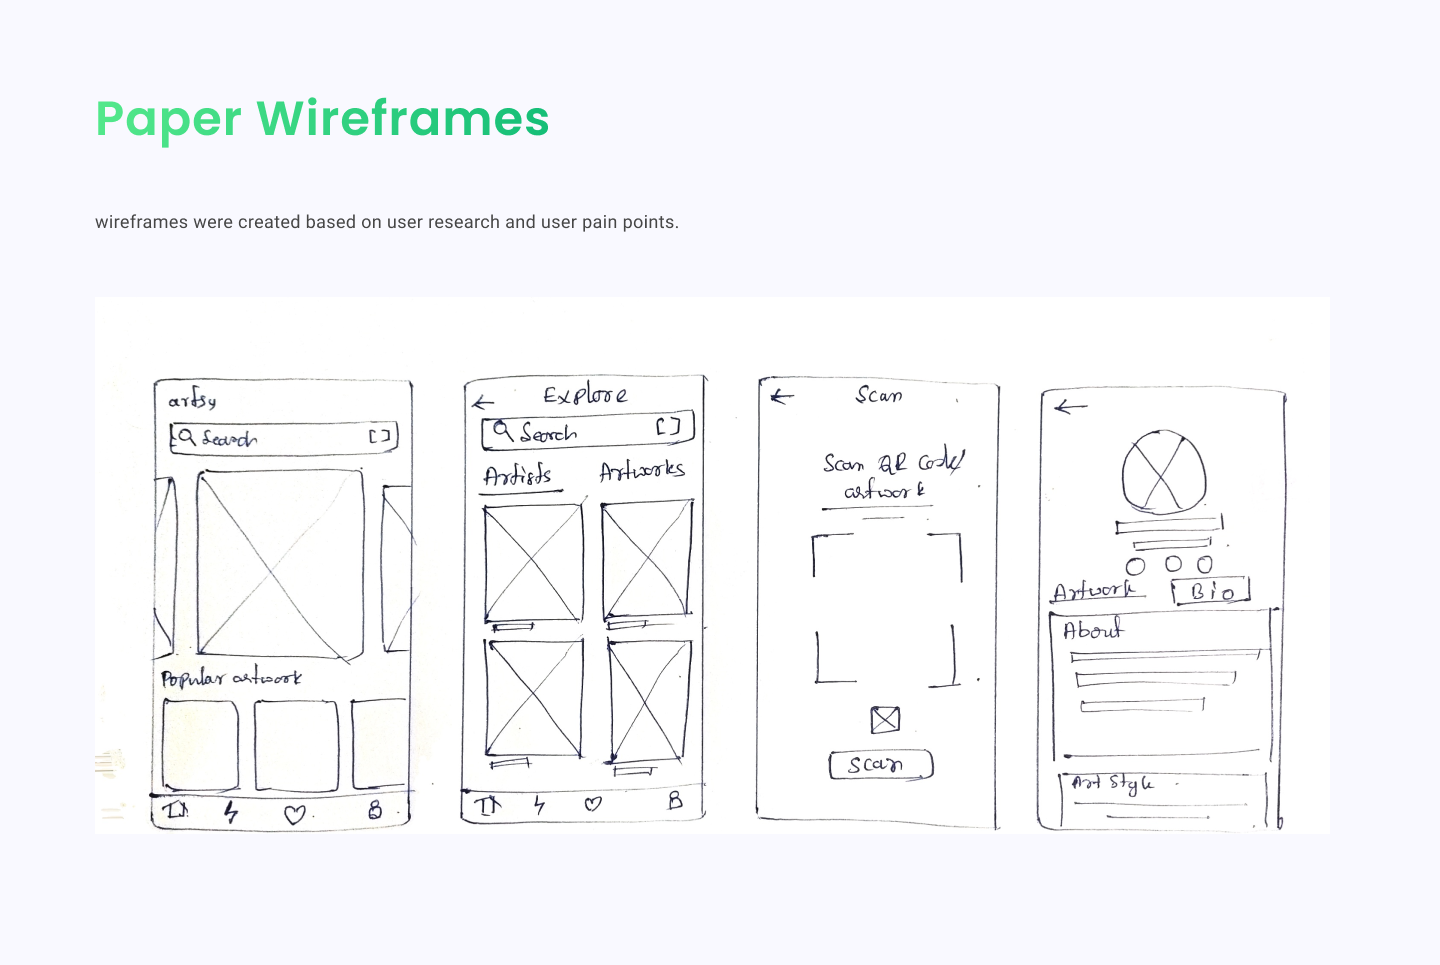 Paper Wireframes
wireframes were created based on user research and user pain points.
artsy
Search
Popular artwork
Explore
Search
Artists Artworks
Scan
Scan QR code/
artwork
Scan
Artwork Bio
About
Art Style